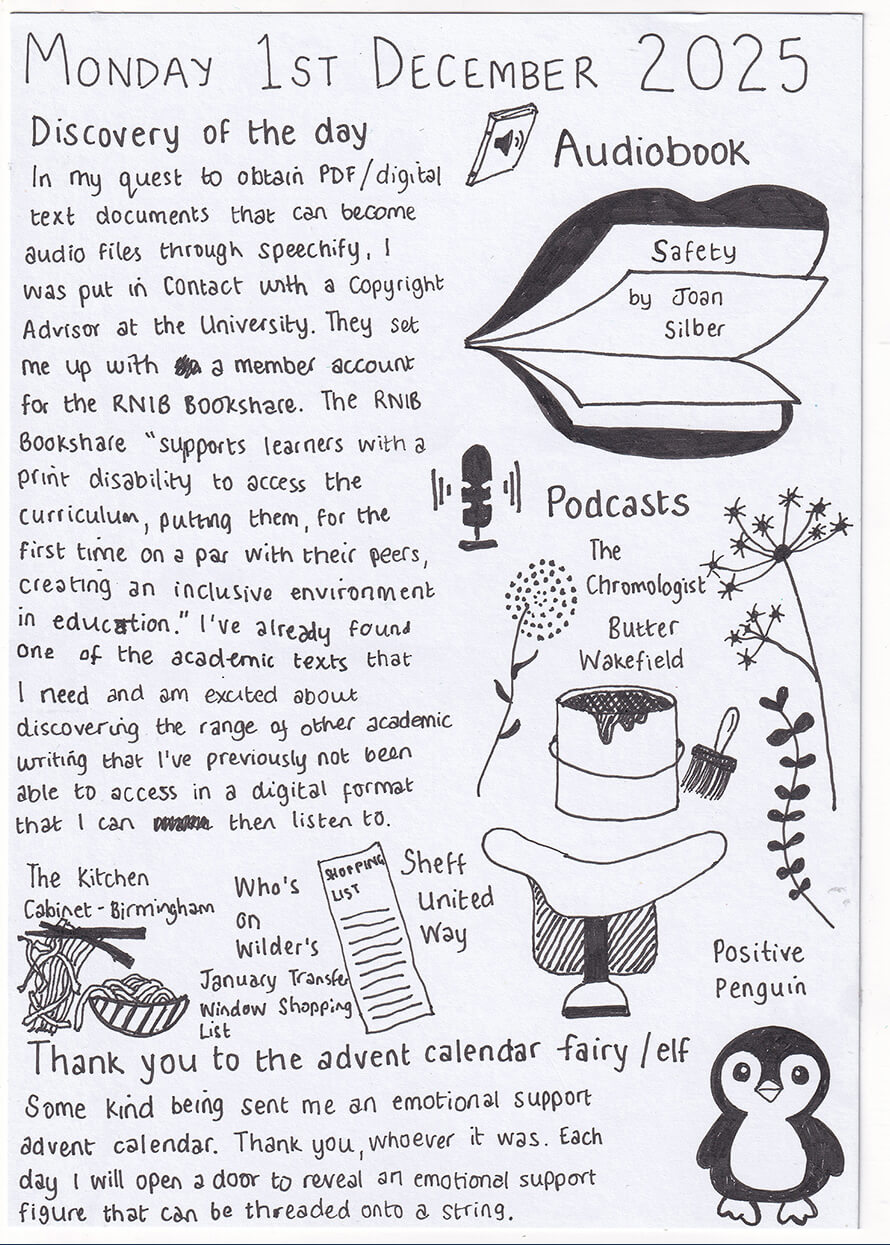 MONDAY 1ST DECEMBER 2025
Discovery of the day
In my quest to obtain PDF/digital
text documents that can become
audio files through speechify, I
was put in contact with a Copyright
Advisor at the University. They set
me up with a member account
for the RNIB Bookshare. The RNIB
Bookshare "supports learners with a
print disability to access the
curriculum, putting them, for the
first time on a par with their peers,
creating an inclusive environment
in education." I've already found
one of the academic texts that
I need and am excited about
discovering the range of other academic
writing that I've previously not been
able to access in a digital format
that I can then listen to.
Audiobook
Safety
by Joan
Silber
Podcasts
The
Chromologist
Butter
Wakefield
The Kitchen
Cabinet - Birmingham
Who's
on
Wilder's
January Transfer
Window Shopping
List
SHOPPING
LIST
Sheff
United
Way
Positive
Penguin
Thank you to the advent calendar fairy/elf
Some kind being sent me an emotional support
advent calendar. Thank you, whoever it was. Each
day I will open a door to reveal an emotional support
figure that can be threaded onto a string.